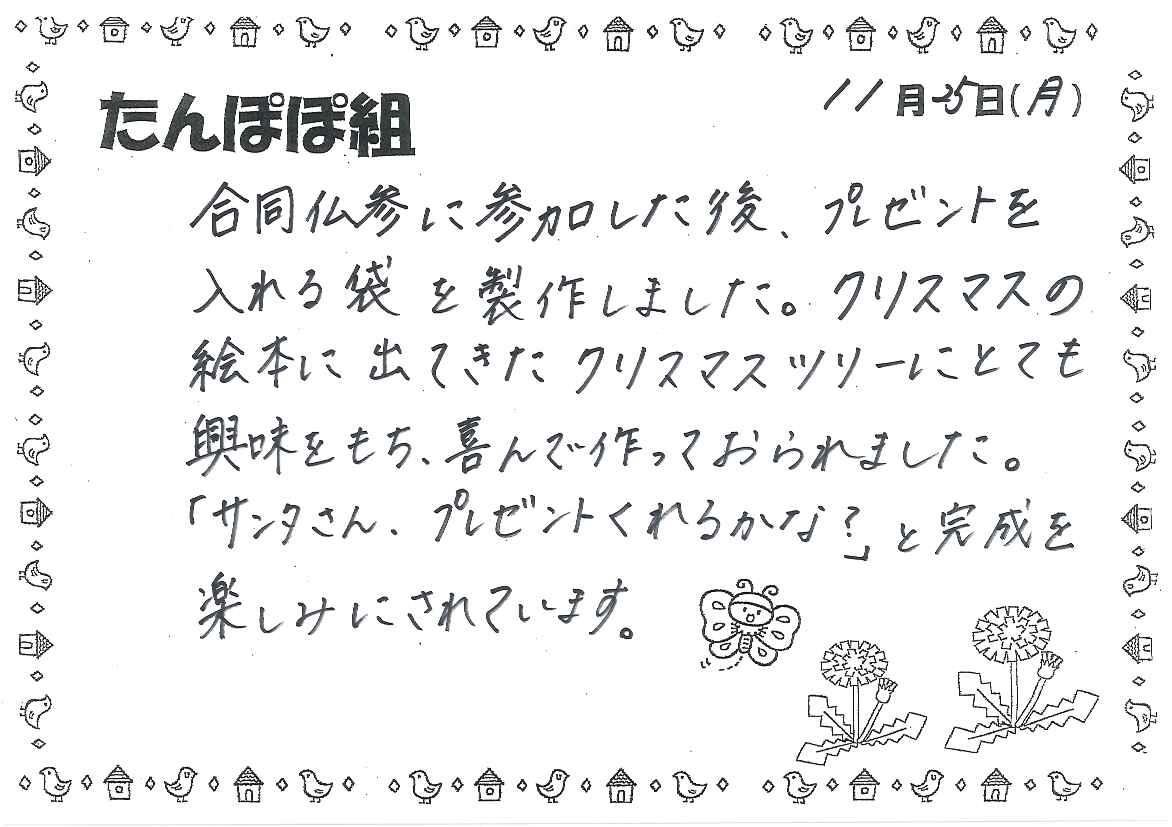 たんぽぽ組
11月25日(月)
合同仏参に参加した後、プレゼントを
入れる袋を製作しました。クリスマスの
絵本に出てきたクリスマスツリーにとても
興味をもち、喜んで作っておられました。
「サンタさん、プレゼントくれるかな?」と完成を
楽しみにされています。